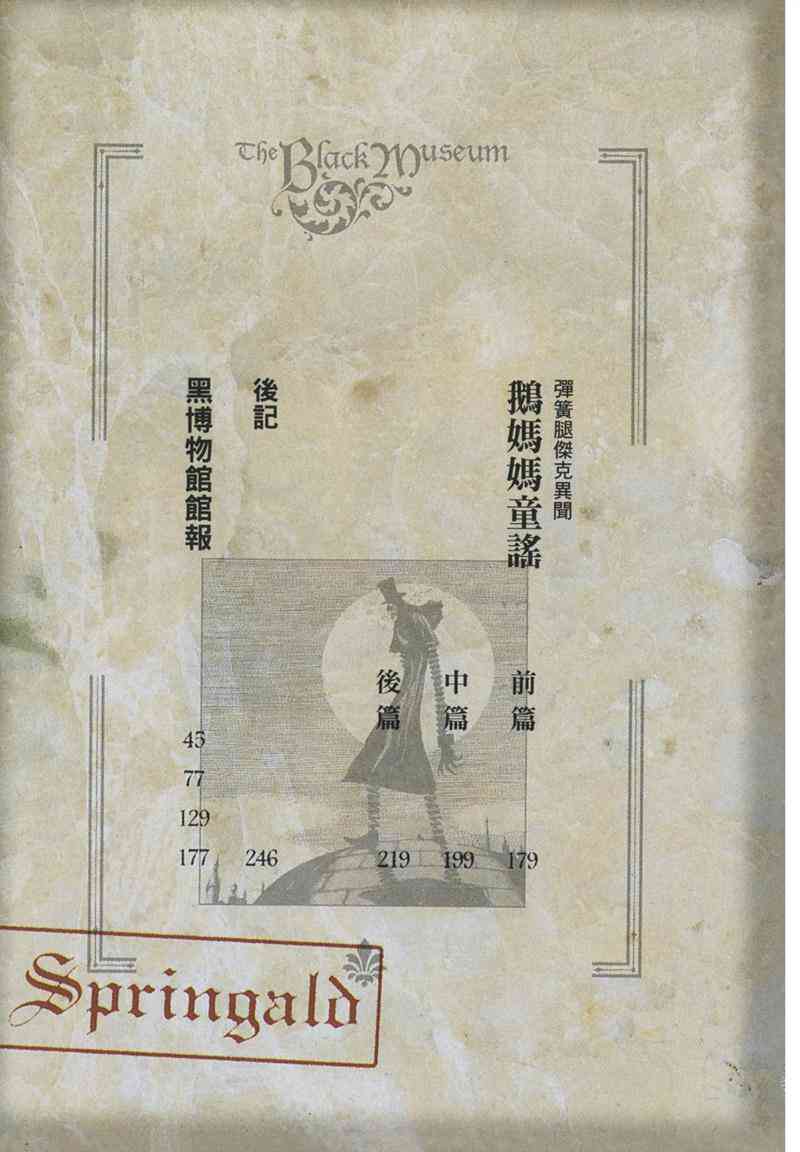 The Black Museum
彈簧腿傑克異聞
鵝媽媽童謠
前篇 179
中篇 199
後篇 219
後記 246
黑博物館館報 45 77 129 177
Springald